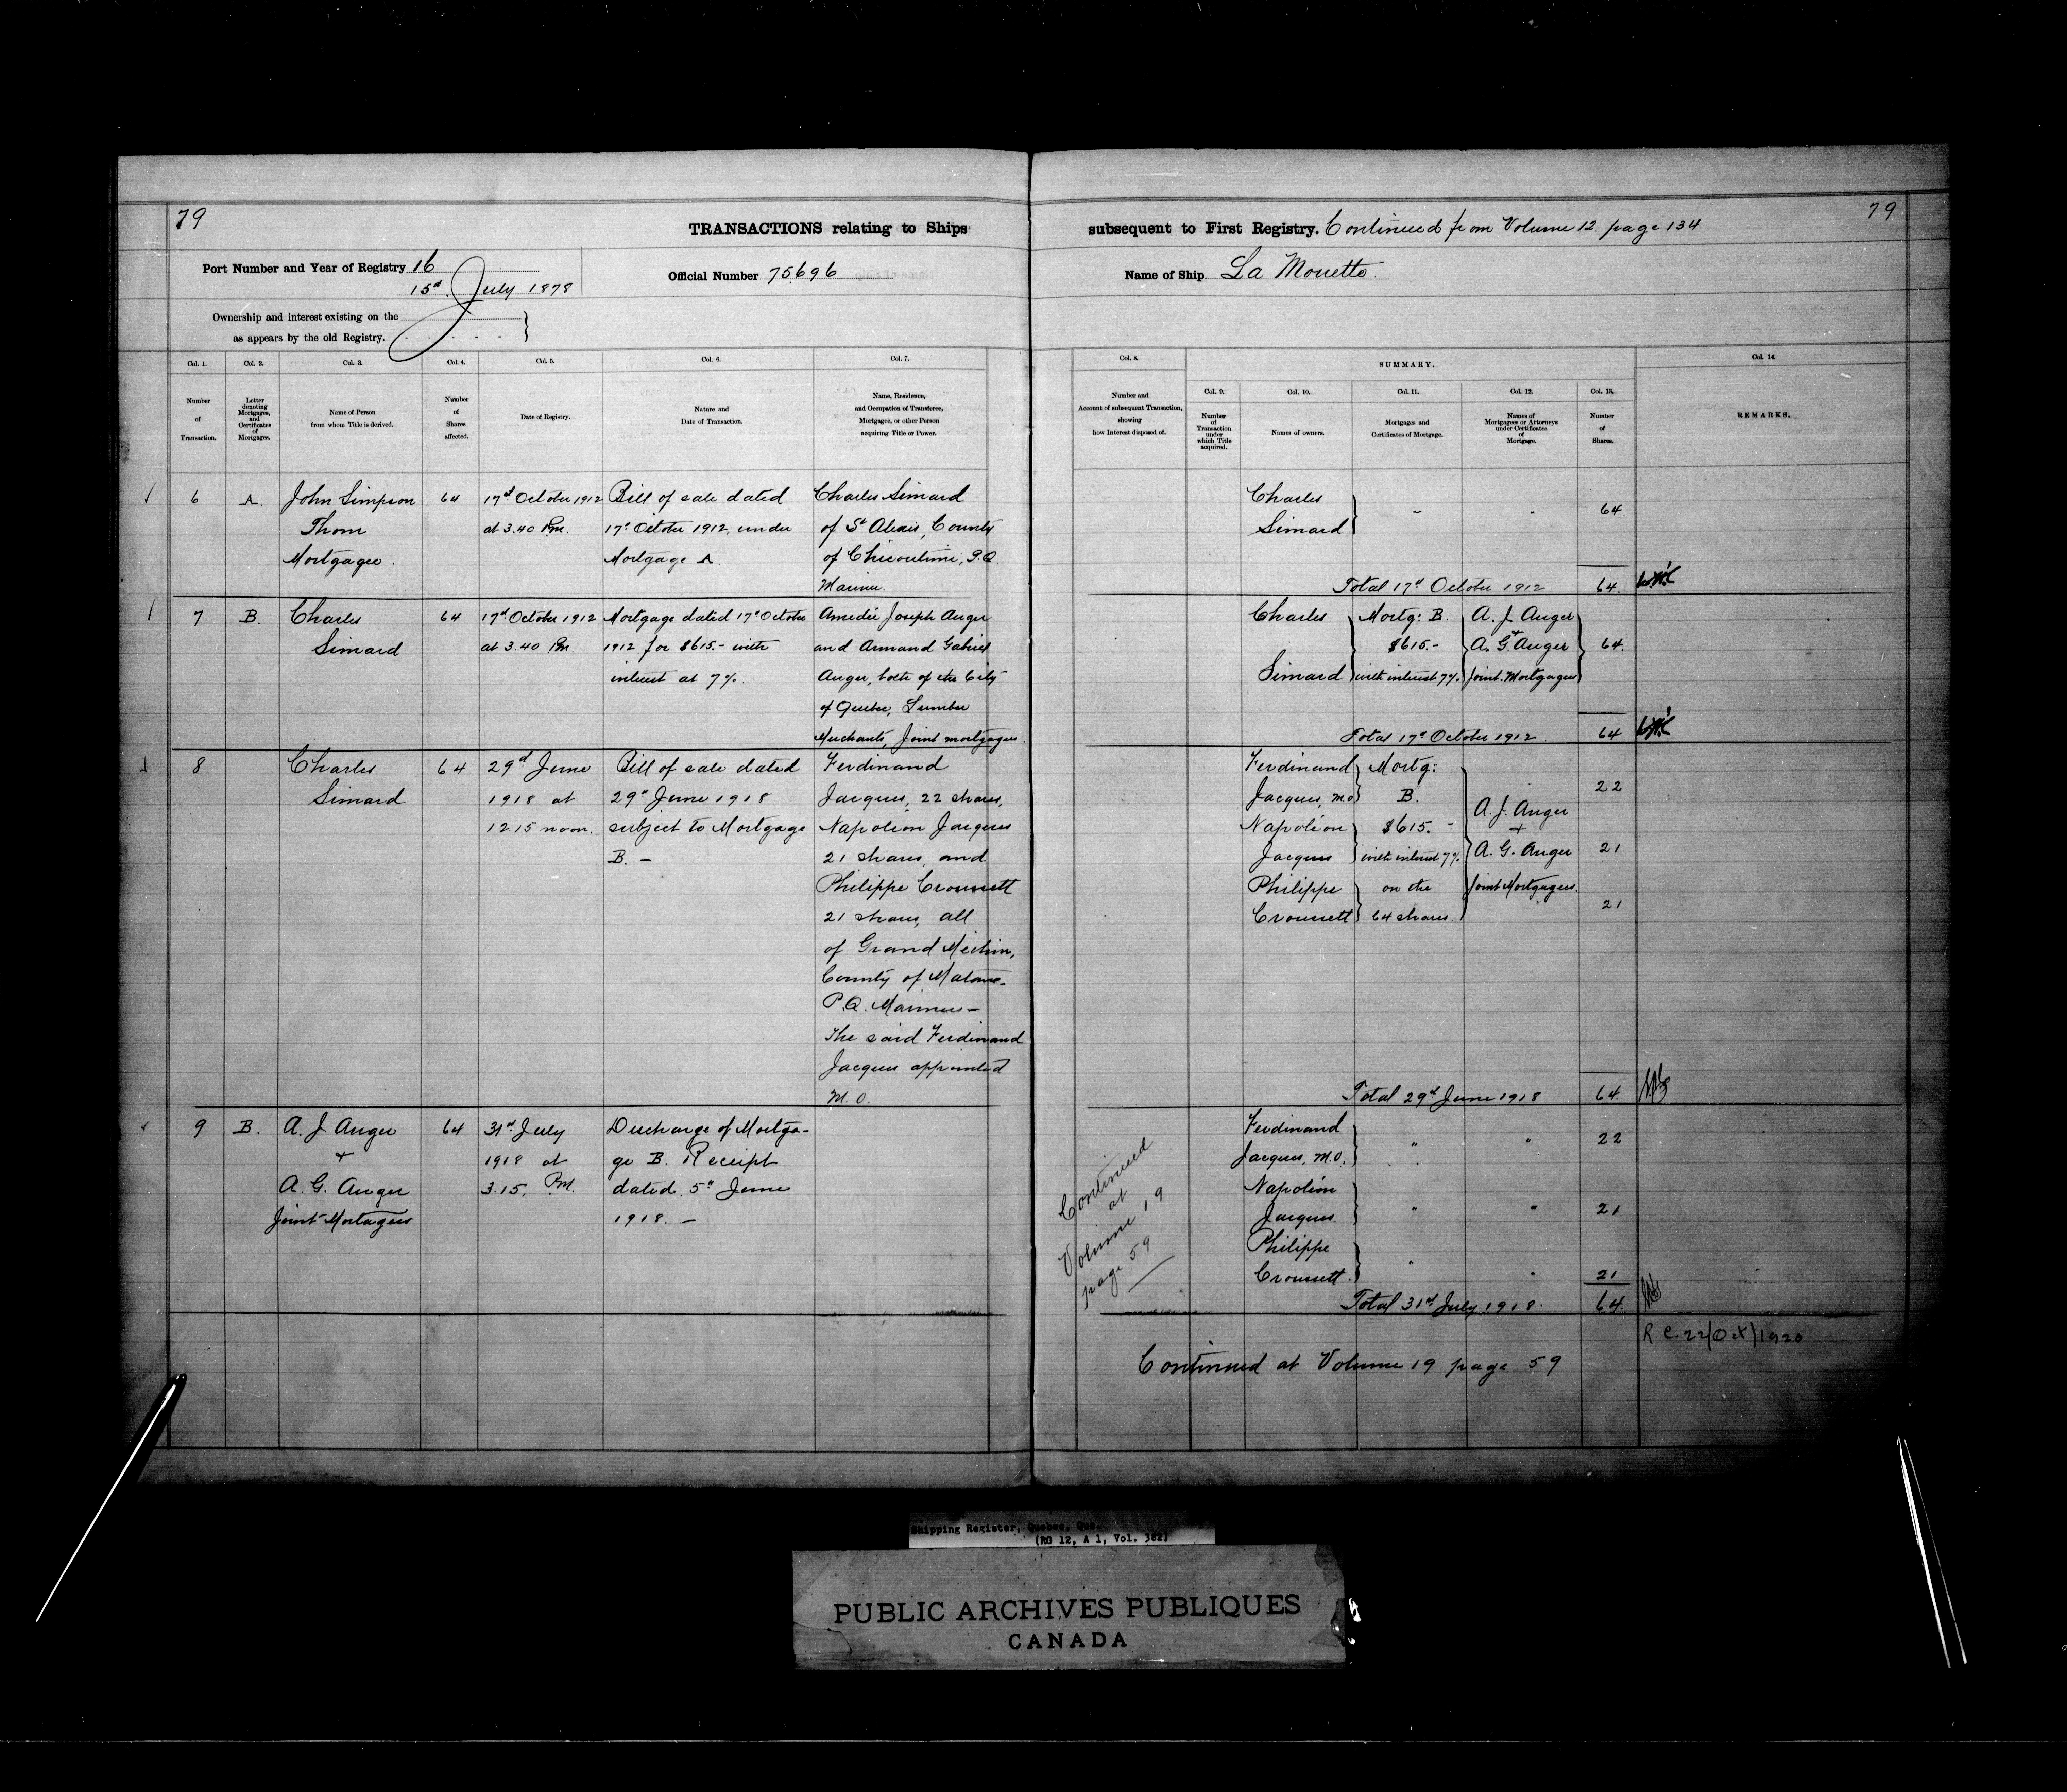 79
TRANSACTIONS relating to Ships
subsequent to First Registry. Continued from Volume 12 page 134
79
Port Number and Year of Registry 16
15d July 1878
Official Number 75696
Name of Ship La Mouette
Ownership and interest existing on the
as appears by the old Registry.
Col. 1.
Number
of
Transaction.
Col. 2.
Letter
denoting
Mortgages,
and
Certificates
of
Mortgages.
Col. 3.
Name of Person
from whom Title is derived.
Col. 4.
Number
of
Shares
affected.
Col. 5.
Date of Registry.
Col. 6.
Nature and
Date of Transaction.
Col. 7.
Name, Residence,
and Occupation of Transferee,
Mortgagee, or other Person
acquiring Title or Power.
Col. 8.
Number and
Account of subsequent Transaction,
showing
how Interest disposed of.
SUMMARY.
Col. 9.
Number
of
Transaction
under
which Title
acquired.
Col. 10.
Names of owners.
Col. 11.
Mortgages and
Certificates of Mortgage.
Col. 12.
Names of
Mortgagees or Attorneys
under Certificates
of
Mortgage.
Col. 13.
Number
of
Shares.
Col. 14.
REMARKS.
6
A.
John Simpson
Thom
Mortgagee.
64
17d October 1912
at 3.40 Pm.
Bill of sale dated
17d October 1912, under
Mortgage A.
Charles Simard
of St Alexis, County
of Chicoutimi, P.Q.
Mariner.
Charles
Simard
64
Total 17d October 1912
64
7
B.
Charles
Simard
64
17d October 1912
at 3.40 Pm.
Mortgage dated 17d October
1912 for $615.- with
interest at 7%.
Amedée Joseph Auger
and Armand Gabriel
Auger, both of the City
of Quebec, Lumber
Merchants, Joint mortgagees
Charles
Simard
Mortg: B.
$615.-
with interest 7%.
A. J. Auger
+
A. G. Auger
Joint Mortgagees
64.
Total 17d October 1912
64
8
Charles
Simard
64
29d June
1918 at
12.15 noon.
Bill of sale dated
29d June 1918
subject to Mortgage
B. -
Ferdinand
Jacques, 22 shares,
Napoléon Jacques
21 shares, and
Philippe Croussett
21 shares, all
of Grand Mechin,
County of Matane
P.Q. Mariners -
The said Ferdinand
Jacques appointed
M. O.
Ferdinand
Jacques, M.O.
Napoléon
Jacques
Philippe
Croussett
Mortg:
B.
$615. -
with interest 7%
on the
64 shares.
A. J. Auger
+
A. G. Auger
Joint Mortgagees.
22
21
21
Total 29d June 1918
64
9
B.
A. J. Auger
+
A. G. Auger
Joint Mortagees
64
31st July
1918 at
3.15. Pm.
Discharge of Mortga-
ge B. Receipt
dated 5th June
1918. -
Continued
at
Volume 19
page 59
Ferdinand
Jacques, M.O.
Napoléon
Jacques
Philippe
Croussett.
22
21
21
Total 31st July 1918.
64.
R. C. 22/Oct/1920
Continued at Volume 19 page 59
Shipping Register, Quebec, Que.
(RG 12, A 1, Vol. 382)
PUBLIC ARCHIVES PUBLIQUES
CANADA